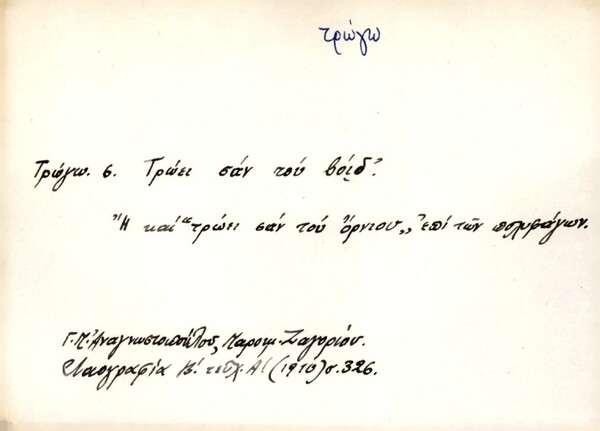 τρώγω
Τρώγω. 6. Τρώει σάν τού βόϊδ'.
Ἤ καί "τρώει σάν τού ὄρνιου,, ἐπί τῶν πολυφάγων.
Γ. Π. Ἀναγνωστοπούλου, Ζαγορίου.
Λαογραφία Β΄. τεῦχ. Α΄ (1910) σ. 326.